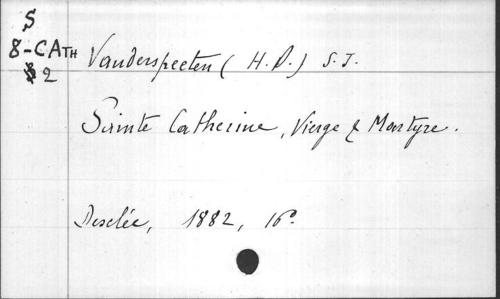 S
8-CATH Vanderspeeten (H.P.) S.J.
§ 2
Sainte Catherine, Vierge & Martyre.
Desclée, 1882, 16°